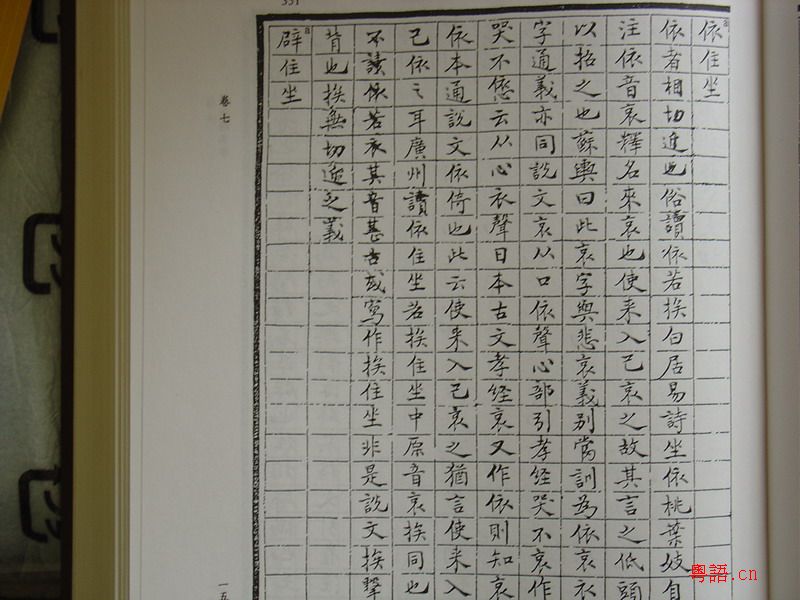 351
依住坐
依者相切近也俗讀依若挨白居易詩坐依桃葉妓自
注依音哀釋名來哀也使来入己哀之故其言之低頭
以招之也蘇輿曰此哀字與悲哀義别當訓為依哀衣
字通義亦同說文哀从口依聲心部引孝經哭不哀作
哭不㥋云从心衣聲日本古文孝經哀又作依則知哀
依本通說文依倚也此云使来入己哀之猶言使来入
己依之耳廣州讀依住坐若挨住坐中原音哀挨同也
不讀依若衣其音甚古或寫作挨住坐非是說文挨擊
背也挨無切近之義
辟住坐
卷七
一五
粵語.cn